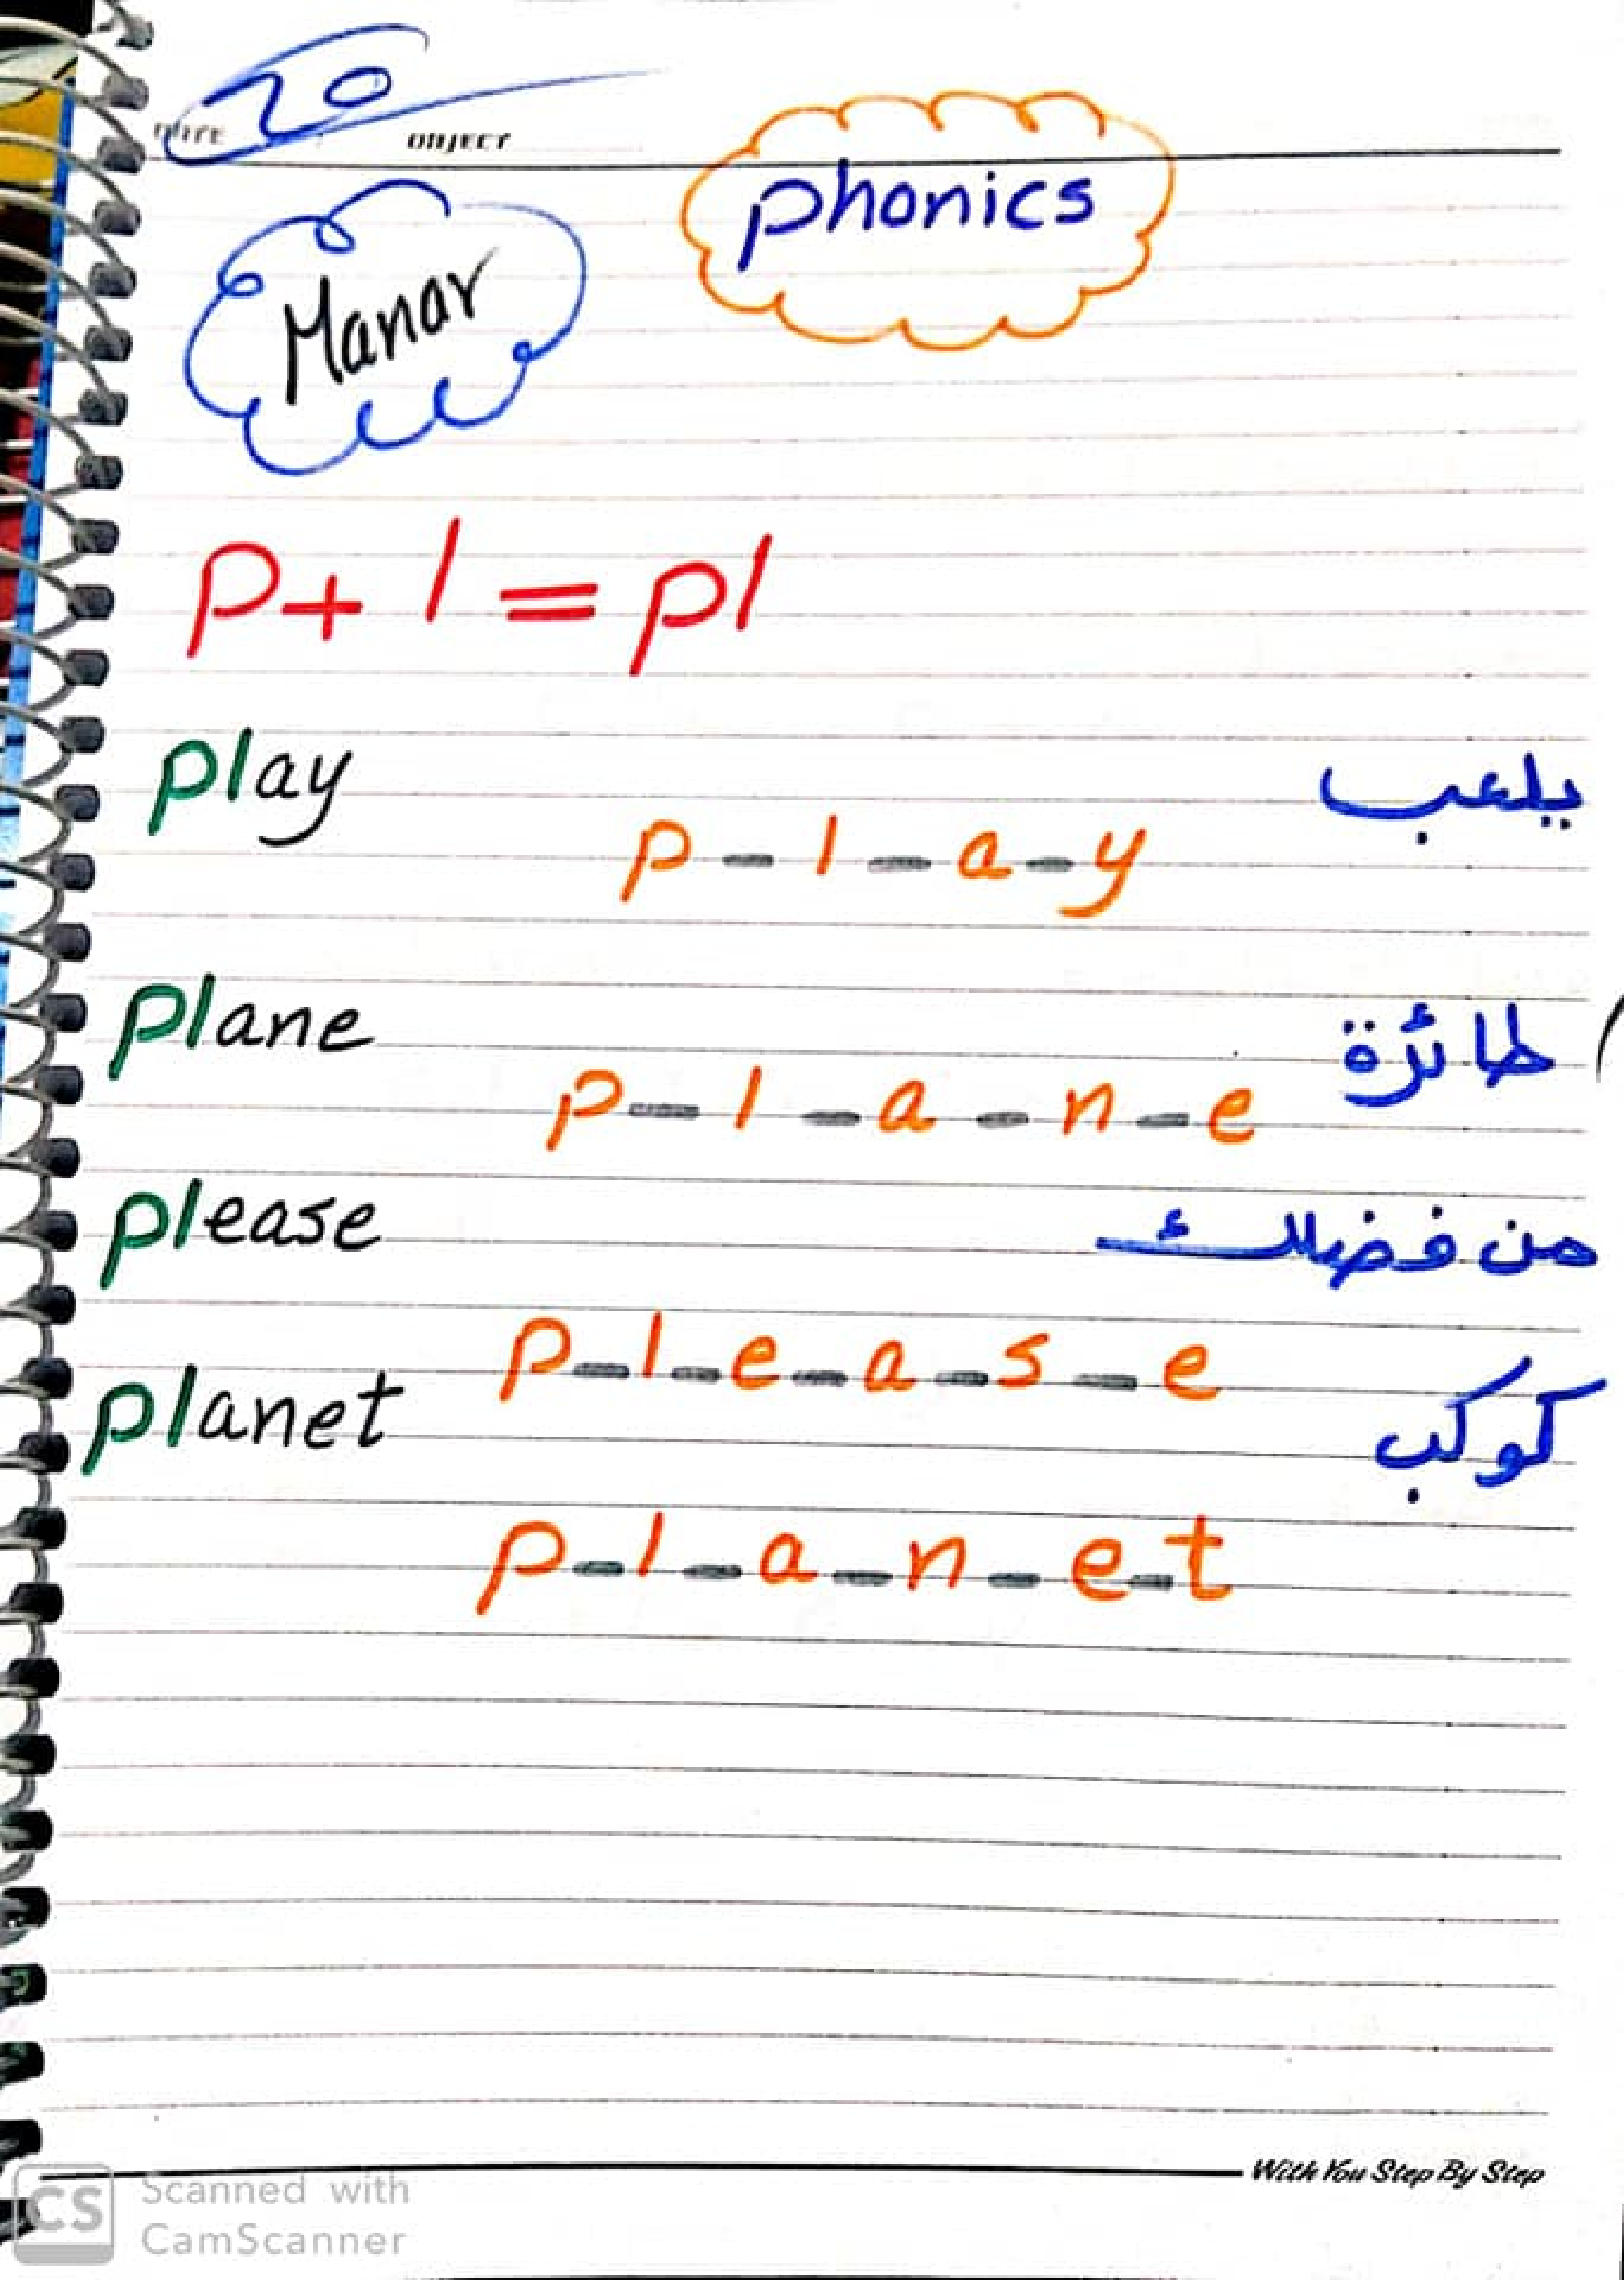 20
DATE OBJECT
phonics
Manar
p + l = pl
play يلعب
p - l - a - y
plane طائرة
p - l - a - n - e
please من فضلك
p - l - e - a - s - e
planet كوكب
p - l - a - n - e - t
With You Step By Step
CS Scanned with
CamScanner